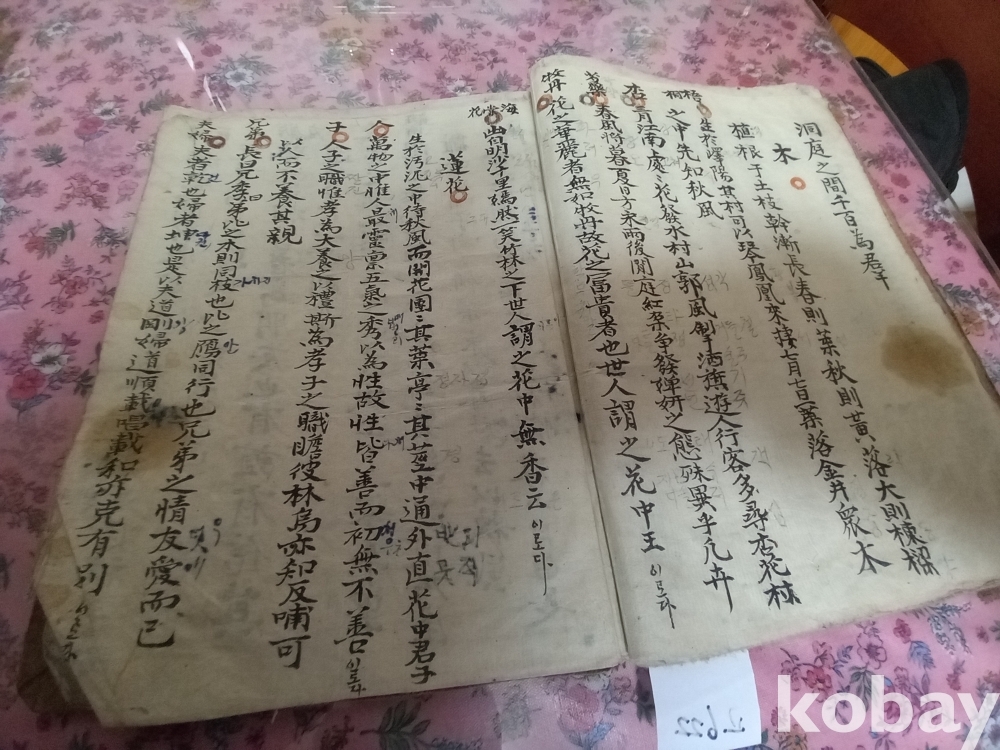 洞庭之間千百為君
木
植根于土枝幹漸長春則葉秋則黃落大則棟樑
梧桐
生於嶧陽其材可以琴鳳凰來棲七月七日葉落金井衆木
之中先知秋風
杏
二月江南處處花發水村山郭風制酒旗遊人行客多尋杏花村
芍藥
春風將暮夏日方來雨後閒庭紅朶争發嬋妍之態殊異乎凡卉
牧丹
花之華麗者無如牧丹故花之富貴者也世人謂之花中王 이로다
海棠花
出自明沙十里嫣然一笑竹林之下世人謂之花中無香云 이로다
蓮花
生於汚泥之中待秋風而開花團ミ其葉亭ミ其莖中通外直花中君子
人
萬物之中惟人最靈禀五氣之秀以為性故性皆善而初無不善 이로다
子
人子之職惟孝為大養之以禮斯為孝子之職瞻彼林烏亦知反哺可
以人而不養其親
兄弟
長曰兄季曰弟比之木則同枝也比之鴈同行也兄弟之情友愛而已
夫婦
夫者乾也婦者坤也是以夫道剛婦道順載唱載和亦克有別
kobay